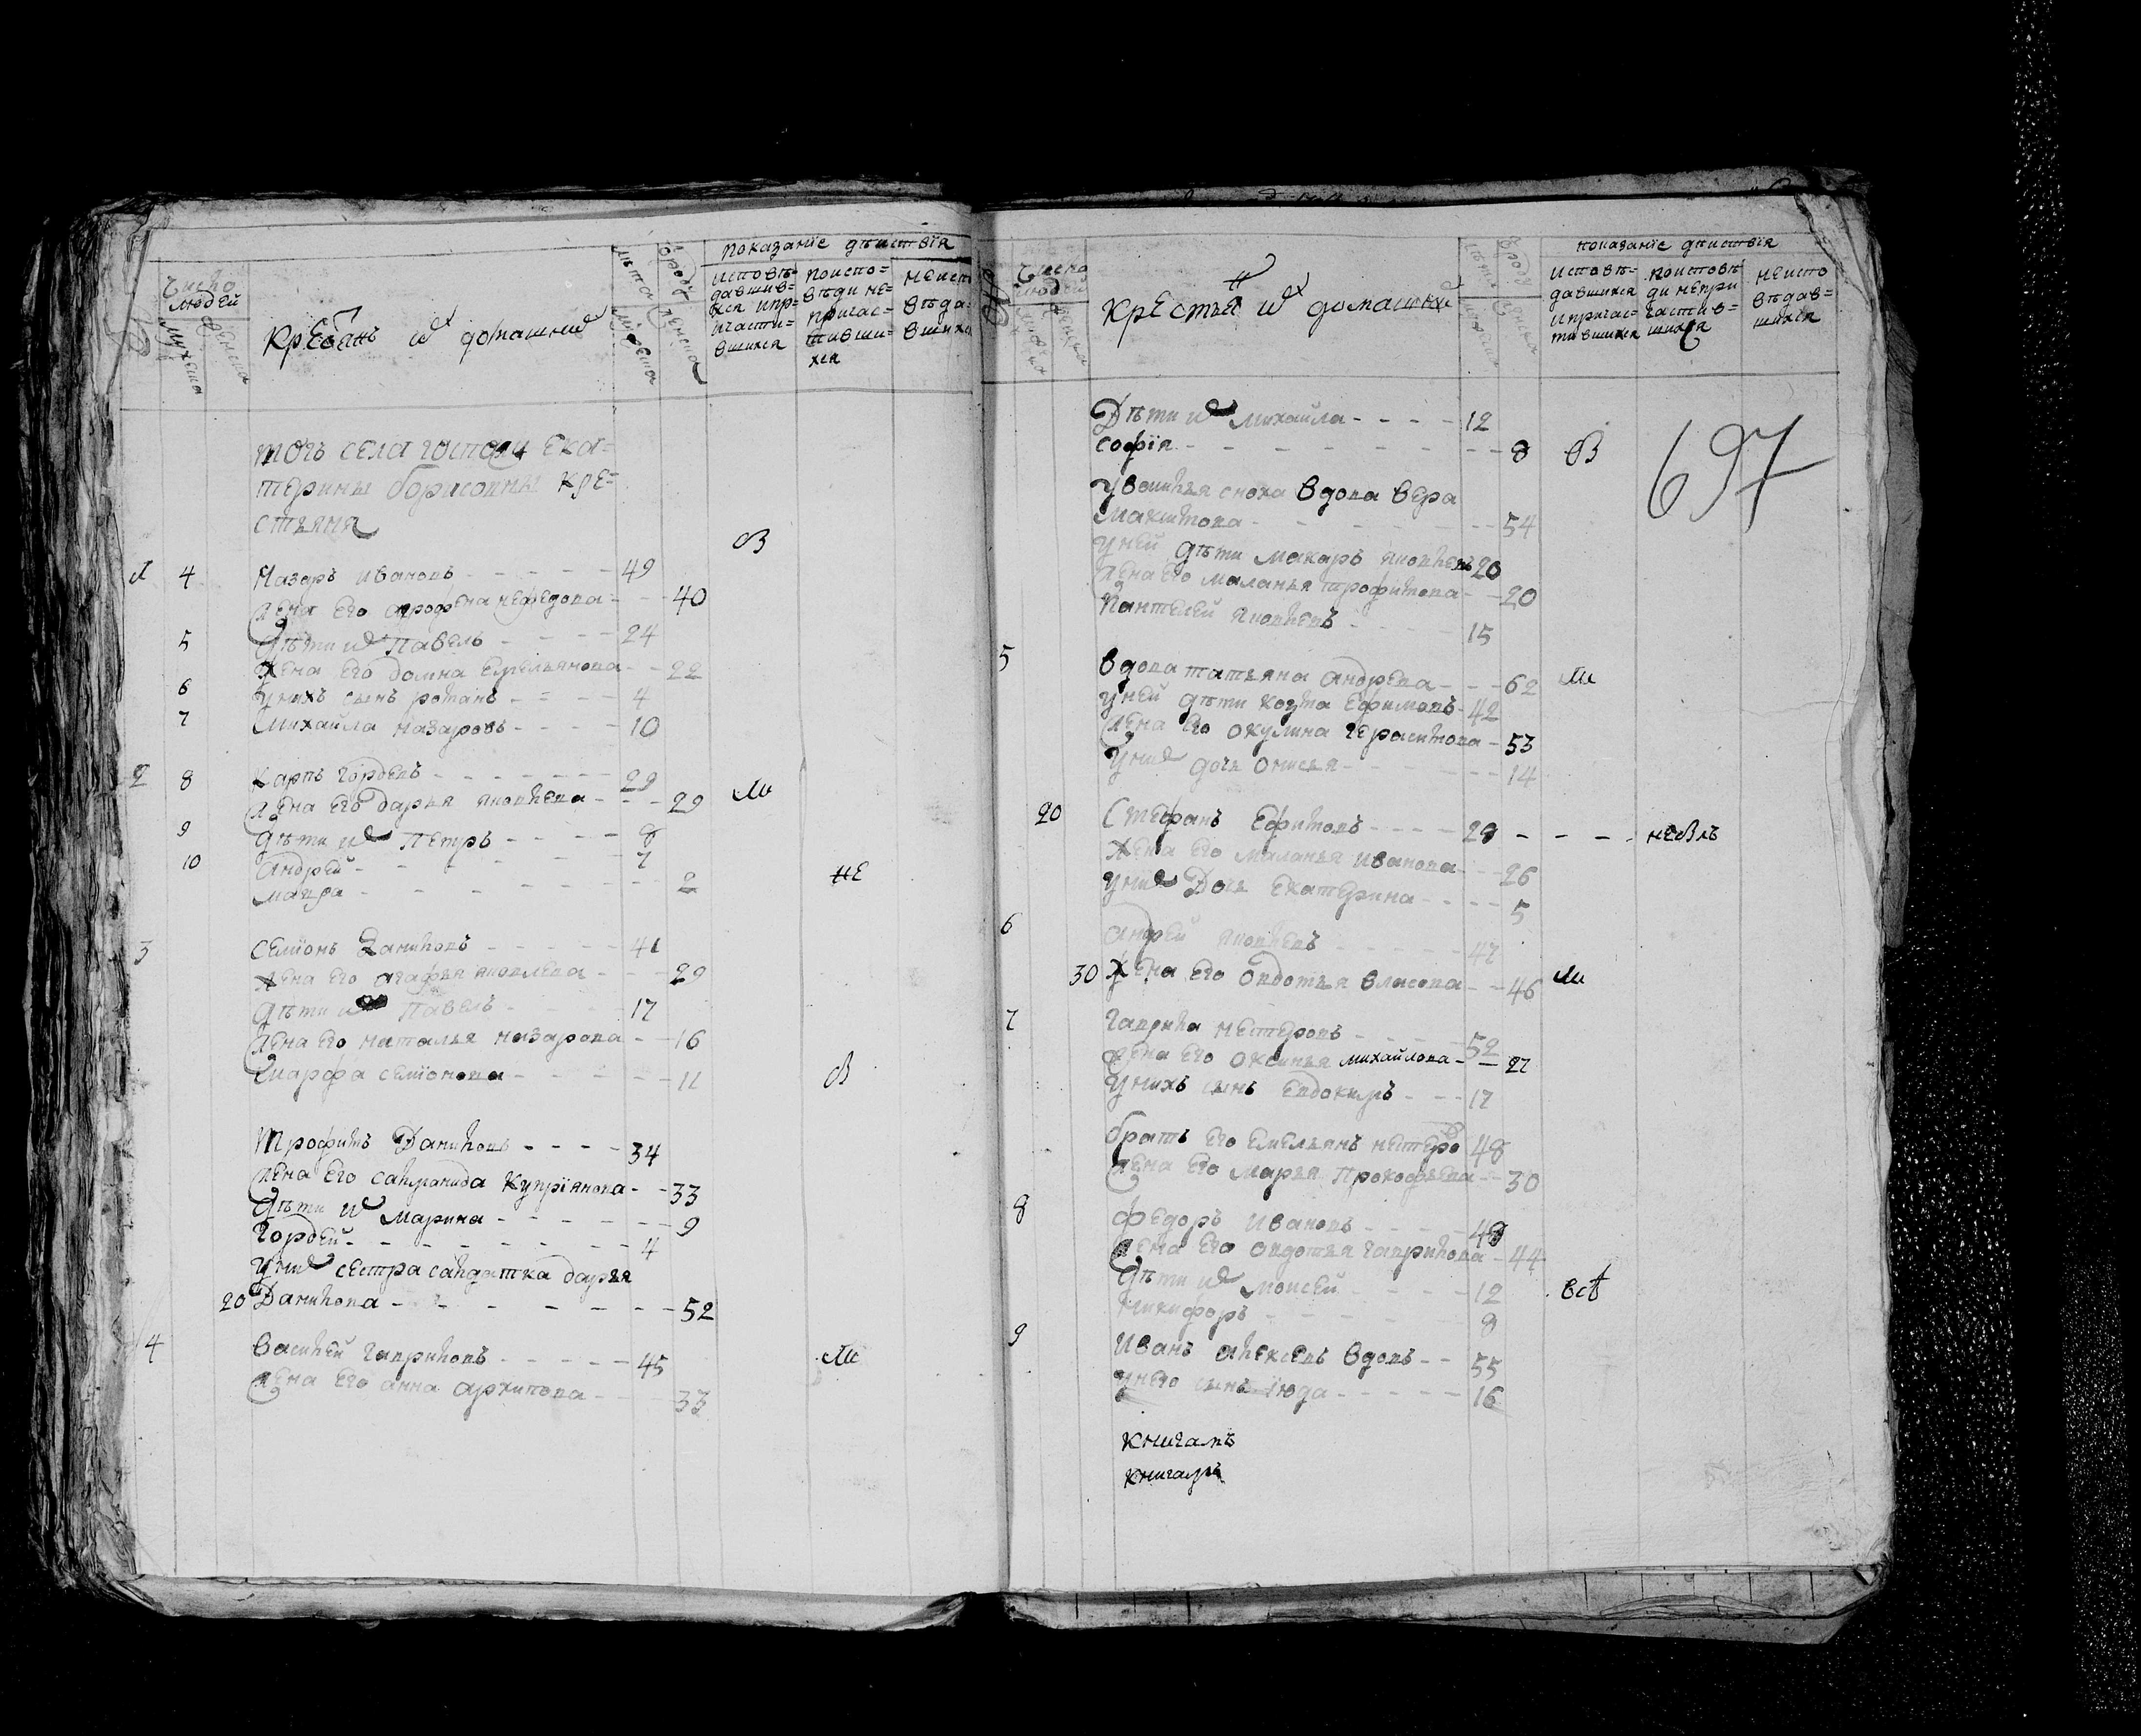 показанїе дѣиствїя
Число
людей
мужеска
женска
крестьянъ и их домашних
лѣта
ѿроду
мужеска
женска
исповѣ=
давшив=
хся ипр=
ичасти=
вшихся
поиспо=
вѣди не=
причас=
тивши=
хся
неисп
вѣда
вшихс
тогъ села госпожи ека=
терины борисовны кре=
стьяня
В
1 4 Назаръ Ивановъ - - - - 49
жена его аграфена нефедова - - 40
5 дѣти их Павелъ - - - - 24
жена его домна Емельянова - - 22
6 у нихъ сынъ романъ - - - 4
7 Михайла назаровъ - - - - 10
2 8 Карпъ Гордѣевъ - - - - - 29
жена его дарья яковлева - - - 29 Ми
9 дѣти их Петръ - - - - 8
10 Андрей - - - - 7
мавра - - - - - - 2 НЕ
3 Семїонъ Даниловъ - - - - 41
жена его агафья яковлева - - - 29
дѣти их Павелъ - - - - 17
жена его наталья назарова - - 16
Марфа семїонова - - - - - 11 В
Трофимъ Даниловъ - - - - 34
жена его саломанида Купрїянова - - 33
дѣти их марина - - - - - - 9
Гордѣй - - - - - - - 4
у них сестра салдатка дарья
20 Данилова - - - - - - - 52
4 Василей гавриловъ - - - - - 45 Ми
жена его анна архипова - - - 33
показанїе дѣиствїя
Число
людей
мужеска
женска
крестьян их домашних
лѣта
ѿроду
мужеска
женска
исповѣ=
давшихся
ипричас=
тившихся
поисповѣ
ди непри
частив=
шихся
неиспо
вѣдав=
шихся
697
Дѣти их михайла - - - - 12
софїя - - - - - - - - 8 В
у василья сноха вдова вера
Максимова - - - - - 54
у ней дѣти макаръ яковлевъ 20
жена его маланья трофимова - - 20
Пантелей яковлевъ - - - - 15
5 вдова татьяна андрѣева - - - 62 Ми
у ней дѣти козма Ефимовъ - 42
жена его окулина герасимова - 53
у них дочь онисья - - - - - - 14
20 Стефанъ Ефимовъ - - - - 29 - - - - небылъ
жена его маланья иванова - - 26
у них Дочь екатерина - - - - 5
6 Андрей яковлевъ - - - - - 47
30 жена его овдотья власова - - 46 Ми
7 гаврила нестеровъ - - - - 52
жена его оксинья михайлова - - 27
у нихъ сынъ Евдокимъ - - - 17
братъ его емельянъ нестеров 48
жена его марья прокофьева - - 30
8 федоръ ивановъ - - - - 49
жена его овдотья гаврилова - 44
дѣти их моисей - - - - 12 всѣ
никифоръ - - - - - 9
9 Иванъ алексеевъ вдовъ - - 55
у него сынъ їюда - - - - - 16
книгамъ
книгамъ